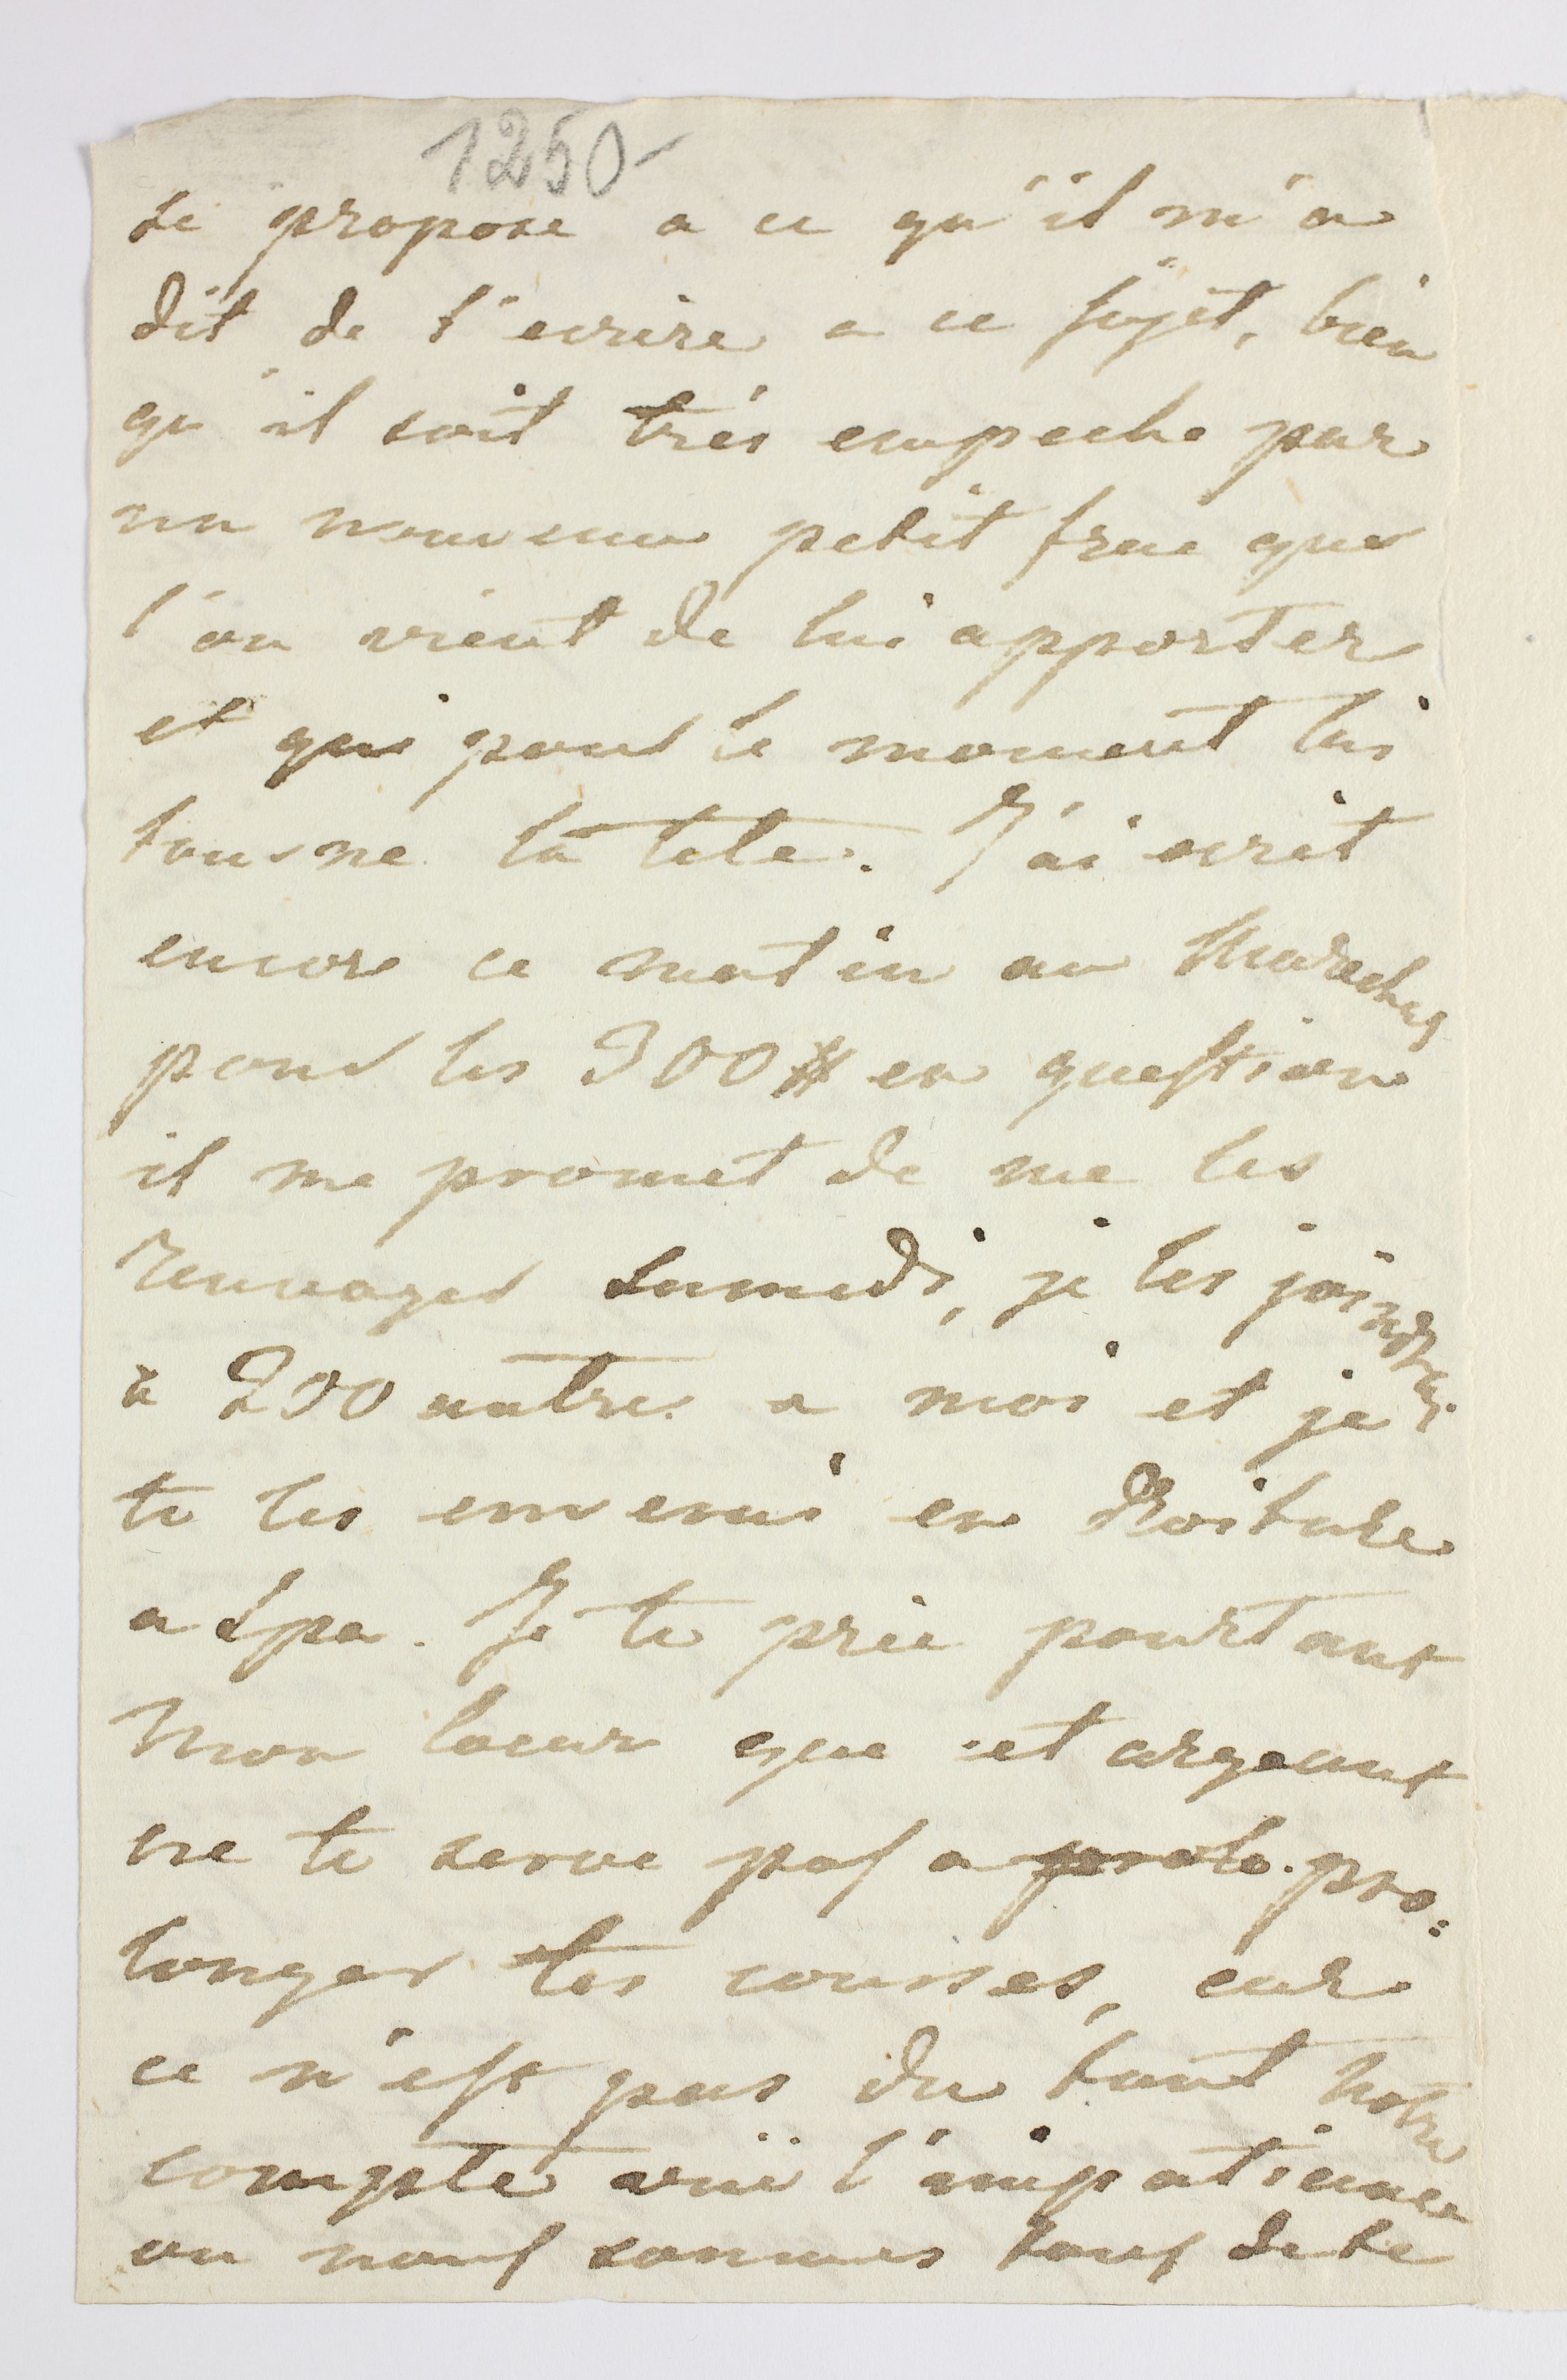 1250-
se propose a ce qu'il m'a
dit de t'ecrire a ce sujet, bien
qu'il soit trés empeche par
un nouveau petit frac que
l'on vient de lui apporter
et qui pour le moment lui
tourne la tete. J'ai ecrit
encore ce matin au Marechal
pour les 300 # en question
il me promet de me les
renvoyer samedi, je les joindrai
a 200 autres a moi et je
te les enverai en droiture
a Spa. Je te prie pourtant
Mon Coeur que cet argeant
ne te serve pas a pro:
longer tes courses, car
ce n'est pas du tout notre
compte vuë l'impatience
ou nous sommes tous de te